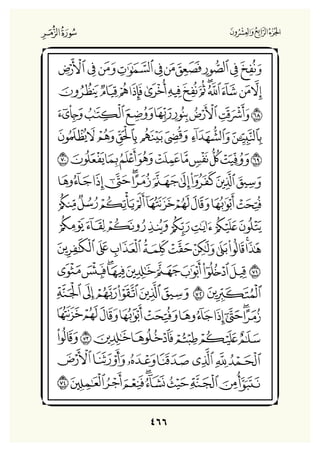 الجزء الرابع والعشرون سورة الزمر
وَنُفِخَ فِي ٱلصُّورِ فَصَعِقَ مَن فِي ٱلسَّمَٰوَٰتِ وَمَن فِي ٱلْأَرْضِ
إِلَّا مَن شَآءَ ٱللَّهُ ۖ ثُمَّ نُفِخَ فِيهِ أُخْرَىٰ فَإِذَا هُمْ قِيَامٌ يَنظُرُونَ
٦٨ وَأَشْرَقَتِ ٱلْأَرْضُ بِنُورِ رَبِّهَا وَوُضِعَ ٱلْكِتَٰبُ وَجِا۟ىٓءَ
بِٱلنَّبِيِّۦنَ وَٱلشُّهَدَآءِ وَقُضِيَ بَيْنَهُم بِٱلْحَقِّ وَهُمْ لَا يُظْلَمُونَ
٦٩ وَوُفِّيَتْ كُلُّ نَفْسٍ مَّا عَمِلَتْ وَهُوَ أَعْلَمُ بِمَا يَفْعَلُونَ ٧٠
وَسِيقَ ٱلَّذِينَ كَفَرُوٓا۟ إِلَىٰ جَهَنَّمَ زُمَرًا ۖ حَتَّىٰٓ إِذَا جَآءُوهَا
فُتِحَتْ أَبْوَٰبُهَا وَقَالَ لَهُمْ خَزَنَتُهَآ أَلَمْ يَأْتِكُمْ رُسُلٌ مِّنكُمْ
يَتْلُونَ عَلَيْكُمْ ءَايَٰتِ رَبِّكُمْ وَيُنذِرُونَكُمْ لِقَآءَ يَوْمِكُمْ
هَٰذَا ۚ قَالُوا۟ بَلَىٰ وَلَٰكِنْ حَقَّتْ كَلِمَةُ ٱلْعَذَابِ عَلَى ٱلْكَٰفِرِينَ
٧١ قِيلَ ٱدْخُلُوٓا۟ أَبْوَٰبَ جَهَنَّمَ خَٰلِدِينَ فِيهَا ۖ فَبِئْسَ مَثْوَى
ٱلْمُتَكَبِّرِينَ ٧٢ وَسِيقَ ٱلَّذِينَ ٱتَّقَوْا۟ رَبَّهُمْ إِلَى ٱلْجَنَّةِ
زُمَرًا ۖ حَتَّىٰٓ إِذَا جَآءُوهَا وَفُتِحَتْ أَبْوَٰبُهَا وَقَالَ لَهُمْ خَزَنَتُهَا
سَلَٰمٌ عَلَيْكُمْ طِبْتُمْ فَٱدْخُلُوهَا خَٰلِدِينَ ٧٣ وَقَالُوا۟
ٱلْحَمْدُ لِلَّهِ ٱلَّذِي صَدَقَنَا وَعْدَهُۥ وَأَوْرَثَنَا ٱلْأَرْضَ
نَتَبَوَّأُ مِنَ ٱلْجَنَّةِ حَيْثُ نَشَآءُ ۖ فَنِعْمَ أَجْرُ ٱلْعَٰمِلِينَ ٧٤
٤٦٦